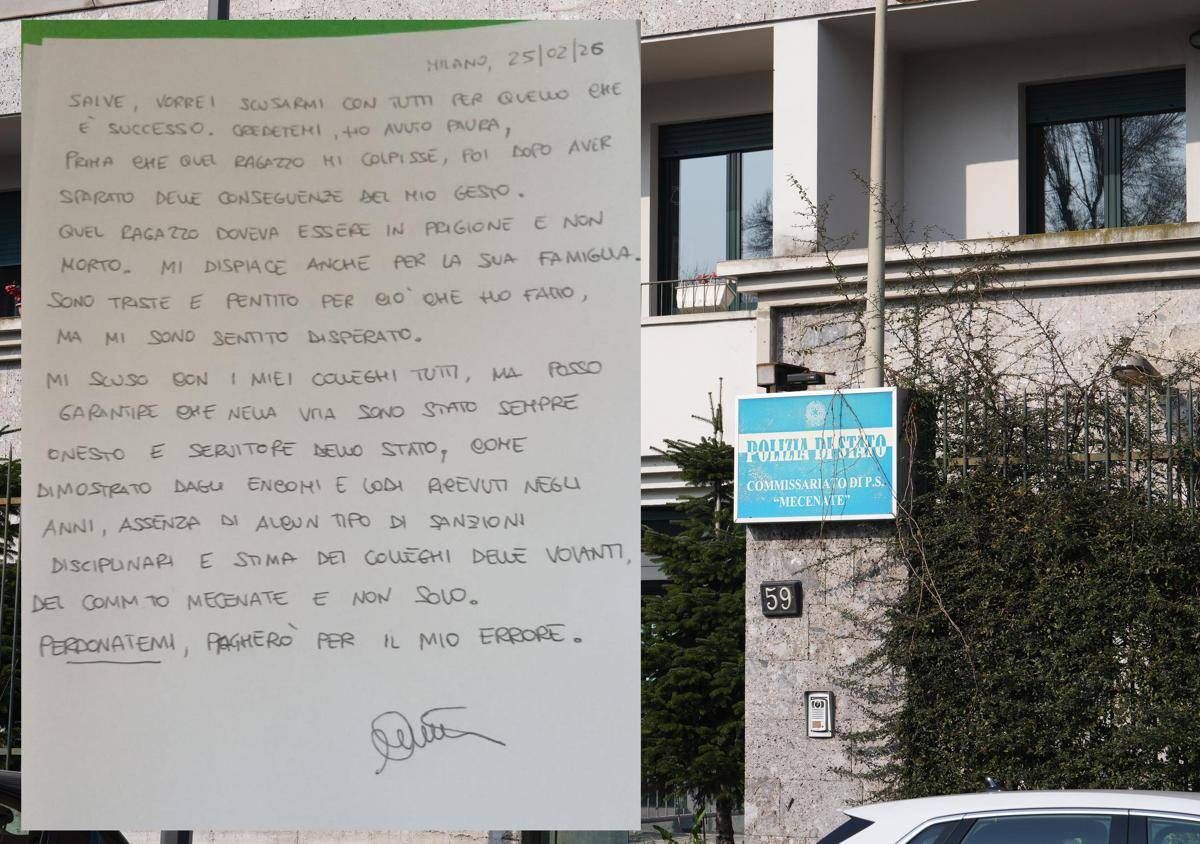 MILANO, 25/02/26
SALVE, VORREI SCUSARMI CON TUTTI PER QUELLO CHE
È SUCCESSO. CREDETEMI, HO AVUTO PAURA,
PRIMA CHE QUEL RAGAZZO MI COLPISSE, POI DOPO AVER
SPARATO DELLE CONSEGUENZE DEL MIO GESTO.
QUEL RAGAZZO DOVEVA ESSERE IN PRIGIONE E NON
MORTO. MI DISPIACE ANCHE PER LA SUA FAMIGLIA.
SONO TRISTE E PENTITO PER CIO' CHE HO FATTO,
MA MI SONO SENTITO DISPERATO.
MI SCUSO CON I MIEI COLLEGHI TUTTI, MA POSSO
GARANTIRE CHE NELLA VITA SONO STATO SEMPRE
ONESTO E SERVITORE DELLO STATO, COME
DIMOSTRATO DAGLI ENCOMI E LODI RICEVUTI NEGLI
ANNI, ASSENZA DI ALCUN TIPO DI SANZIONI
DISCIPLINARI E STIMA DEI COLLEGHI DELLE VOLANTI,
DEL COMM.TO MECENATE E NON SOLO.
PERDONATEMI, PAGHERO' PER IL MIO ERRORE.
POLIZIA DI STATO
COMMISSARIATO DI P.S.
"MECENATE"
59